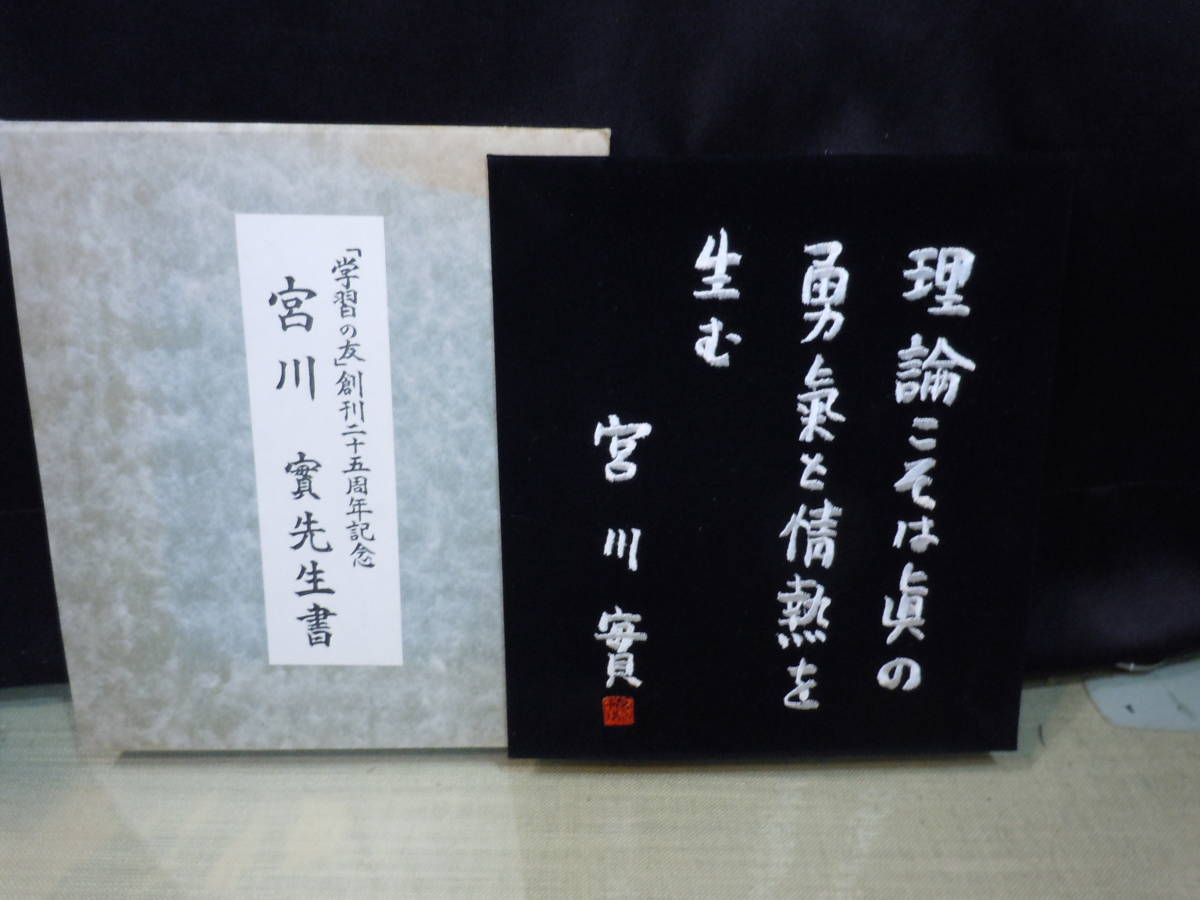 「学習の友」創刊二十五周年記念
宮川 實先生書
理論こそは眞の
勇氣と情熱を
生む
宮川實